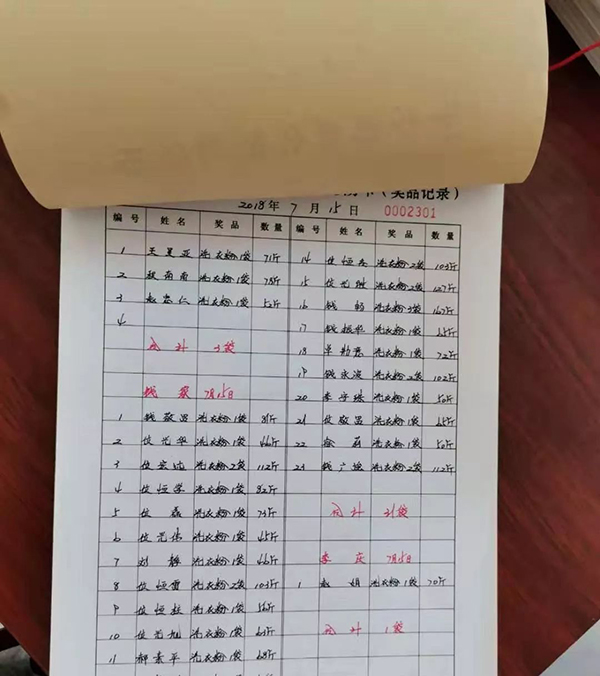 （奖品记录）
2018年 7月 15日 0002301
编号 姓名 奖品 数量
1 洗衣粉1袋 71斤
2 洗衣粉1袋 78斤
3 洗衣粉1袋 52斤
4
合计 3袋
7月15日
1 钱敬昌 洗衣粉1袋 81斤
2 位光华 洗衣粉1袋 66斤
3 洗衣粉2袋 112斤
4 位恒学 洗衣粉1袋 82斤
5 位磊 洗衣粉1袋 73斤
6 位光伟 洗衣粉1袋 65斤
7 刘静 洗衣粉1袋 66斤
8 位恒雷 洗衣粉2袋 103斤
9 洗衣粉1袋 56斤
10 位光旭 洗衣粉1袋 63斤
11 郝素平 洗衣粉1袋 68斤
编号 姓名 奖品 数量
14 洗衣粉2袋 103斤
15 洗衣粉2袋 127斤
16 洗衣粉3袋 167斤
17 钱振华 洗衣粉1袋 55斤
18 洗衣粉1袋 72斤
19 钱永凌 洗衣粉2袋 102斤
20 洗衣粉1袋 50斤
21 位敬昌 洗衣粉1袋 65斤
22 徐莉 洗衣粉1袋 50斤
23 洗衣粉2袋 112斤
合计 31袋
李庆 7月15日
1 赵娟 洗衣粉1袋 70斤
合计 1袋